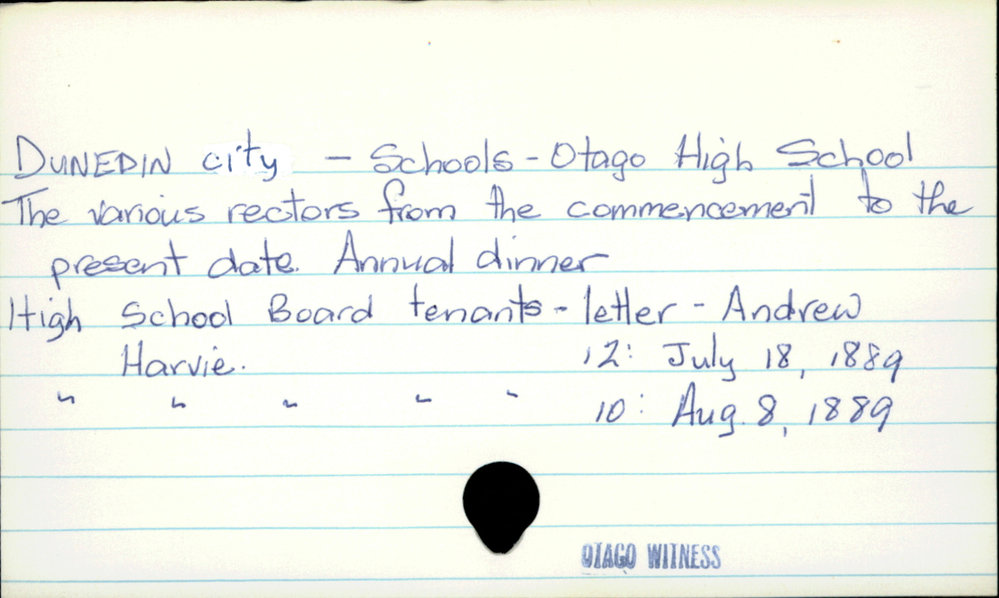 DUNEDIN city - Schools - Otago High School
The various rectors from the commencement to the
present date. Annual dinner
High School Board tenants - letter - Andrew
Harvie. 12: July 18, 1889
" " " " " 10: Aug. 8, 1889
OTAGO WITNESS